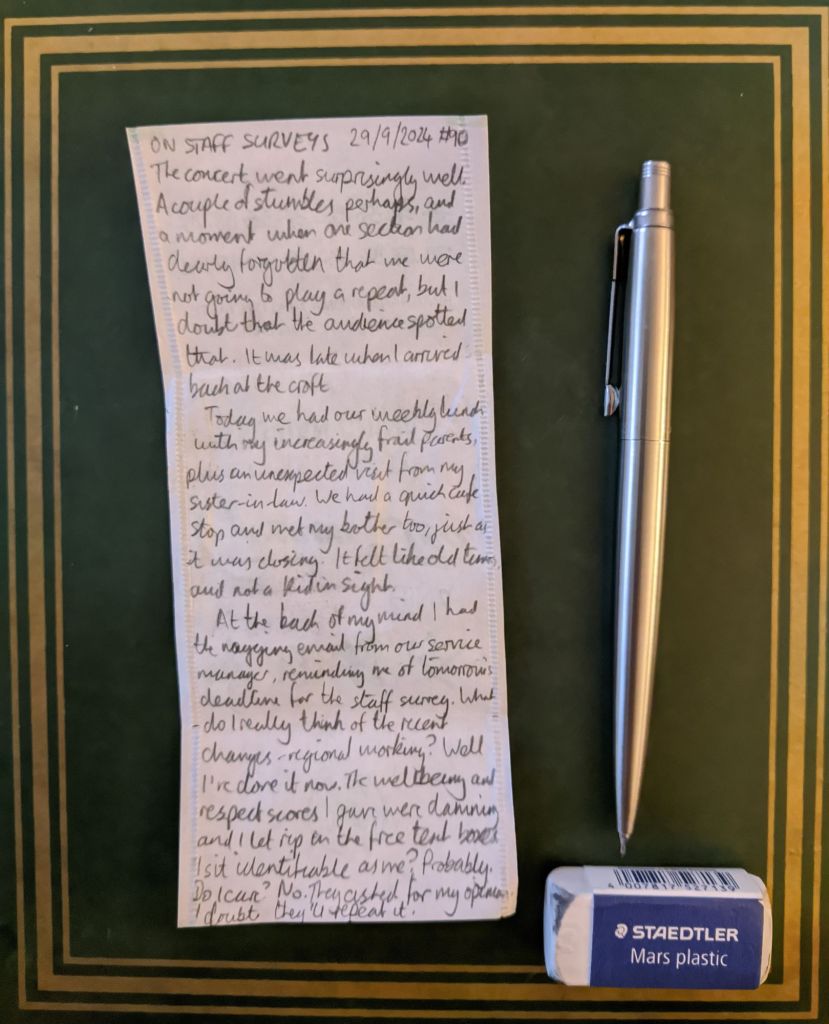 ON STAFF SURVEYS 29/9/2024 #90
The concert went surprisingly well.
A couple of stumbles perhaps, and
a moment when one section had
clearly forgotten that we were
not going to play a repeat, but I
doubt that the audience spotted
that. It was late when I arrived
back at the croft
Today we had our weekly lunch
with my increasingly frail parents,
plus an unexpected visit from my
sister-in-law. We had a quick cafe
stop and met my bother too, just as
it was closing. It felt like old times,
and not a kid in sight.
At the back of my mind I had
the nagging email from our service
manager, reminding me of tomorrow's
deadline for the staff survey. What
do I really think of the recent
changes - regional working? Well
I've done it now. The wellbeing and
respect scores I gave were damning
and I let rip on the free text boxes
Is it identifiable as me? Probably.
Do I care? No. They asked for my opinion
I doubt they'll repeat it.
4 007817 527139
STAEDTLER
Mars plastic